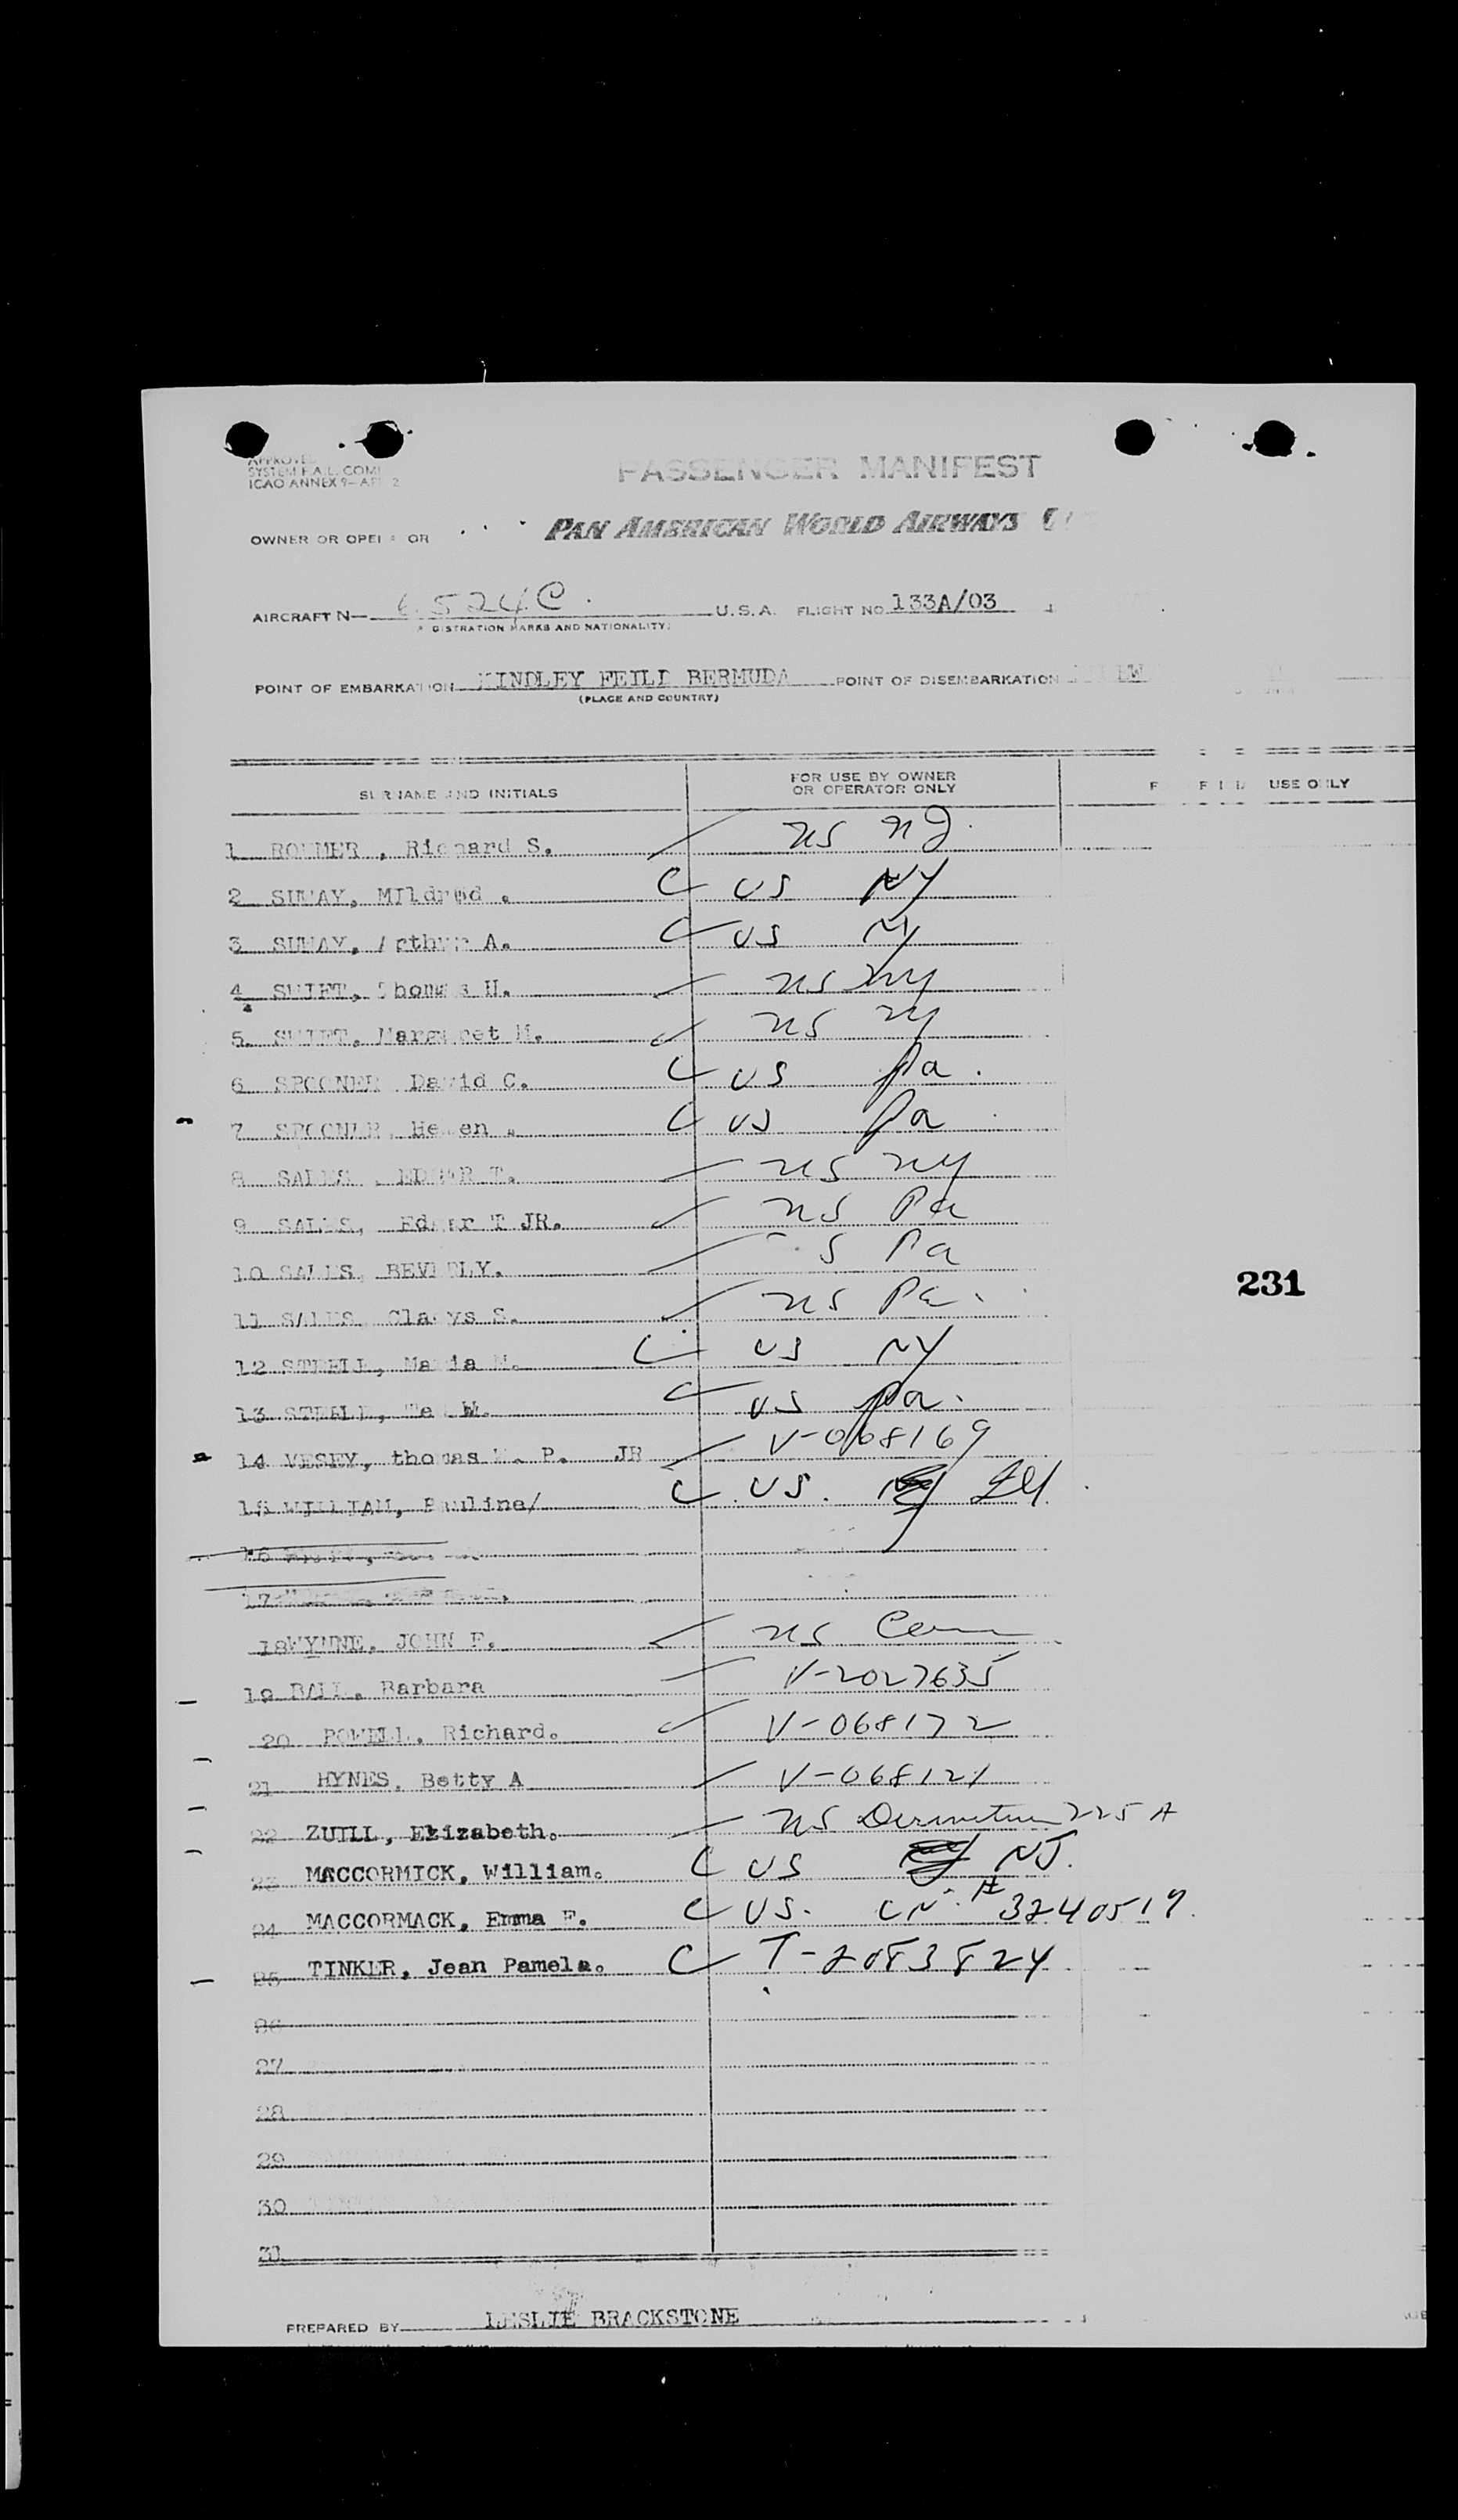 SYSTEM F.A.L. COM
ICAO ANNEX 9—
PASSENGER MANIFEST
OWNER OR OPERATOR PAN AMERICAN WORLD AIRWAYS
AIRCRAFT N— 6524C. U.S.A. FLIGHT NO. 133A/03
REGISTRATION MARKS AND NATIONALITY)
POINT OF EMBARKATION KINDLEY FEILD BERMUDA POINT OF DISEMBARKATION
(PLACE AND COUNTRY)
SURNAME AND INITIALS FOR USE BY OWNER OR OPERATOR ONLY USE ONLY
1 Richard S. US NJ
2 MIldred . C US NY
3 Arthur A. C US NY
4 SWIFT, Thomas H. US NY
5. SWIFT, Margaret M. US NY
6 SPOONER David C. C US Pa.
7 SPOONER, Helen . C US Pa
8 SALES , EDGAR T. US NY
9 SALES, Edgar T JR. US Pa
10 SALES, BEVERLY. US Pa
11 SALES, Gladys S. US Pa.
12 Maria C US NY
13 STEELE, W. C US Pa.
14 VESEY, thomas P. JR V-068169
15 WILLIAM, Pauline/ C US. Ill
16
17
18 WYNNE, JOHN F. US Conn
19 BALL. Barbara V-2027635
20 POWELL. Richard. V-068172
21 HYNES, Betty A V-068121
22 ZUILL, Elizabeth. US 225 A
23 MACCORMICK, William. C US NJ.
24 MACCORMACK, Emma F. C US. CN. # 3240519
25 TINKER, Jean Pamela. C T-2083824
26
27
28
29
30
31
231
PREPARED BY LESLIE BRACKSTONE